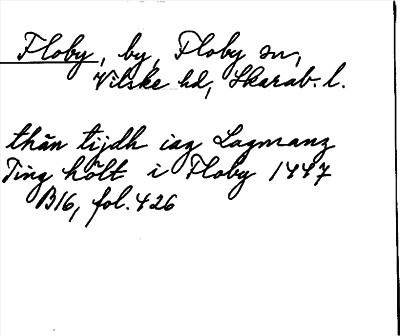 Floby, by, Floby sn,
Vilske hd, Skarab. l.
thän tijdh iag Lagmanz
Ting hölt i Floby 1447
B16, fol. 426